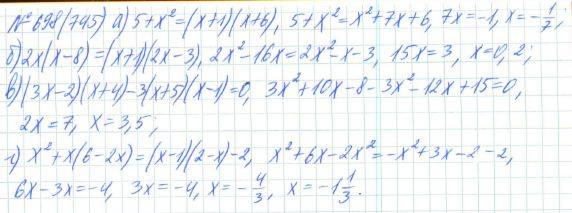 № 698(745) а) 5+x²=(x+1)(x+6), 5+x²=x²+7x+6, 7x=-1, x=-1/7,
б) 2x(x-8)=(x+1)(2x-3), 2x²-16x=2x²-x-3, 15x=3, x=0,2;
в) (3x-2)(x+4)-3(x+5)(x-1)=0, 3x²+10x-8-3x²-12x+15=0,
2x=7, x=3,5;
г) x²+x(6-2x)=(x-1)(2-x)-2, x²+6x-2x²=-x²+3x-2-2,
6x-3x=-4, 3x=-4, x=-4/3, x=-1 1/3.